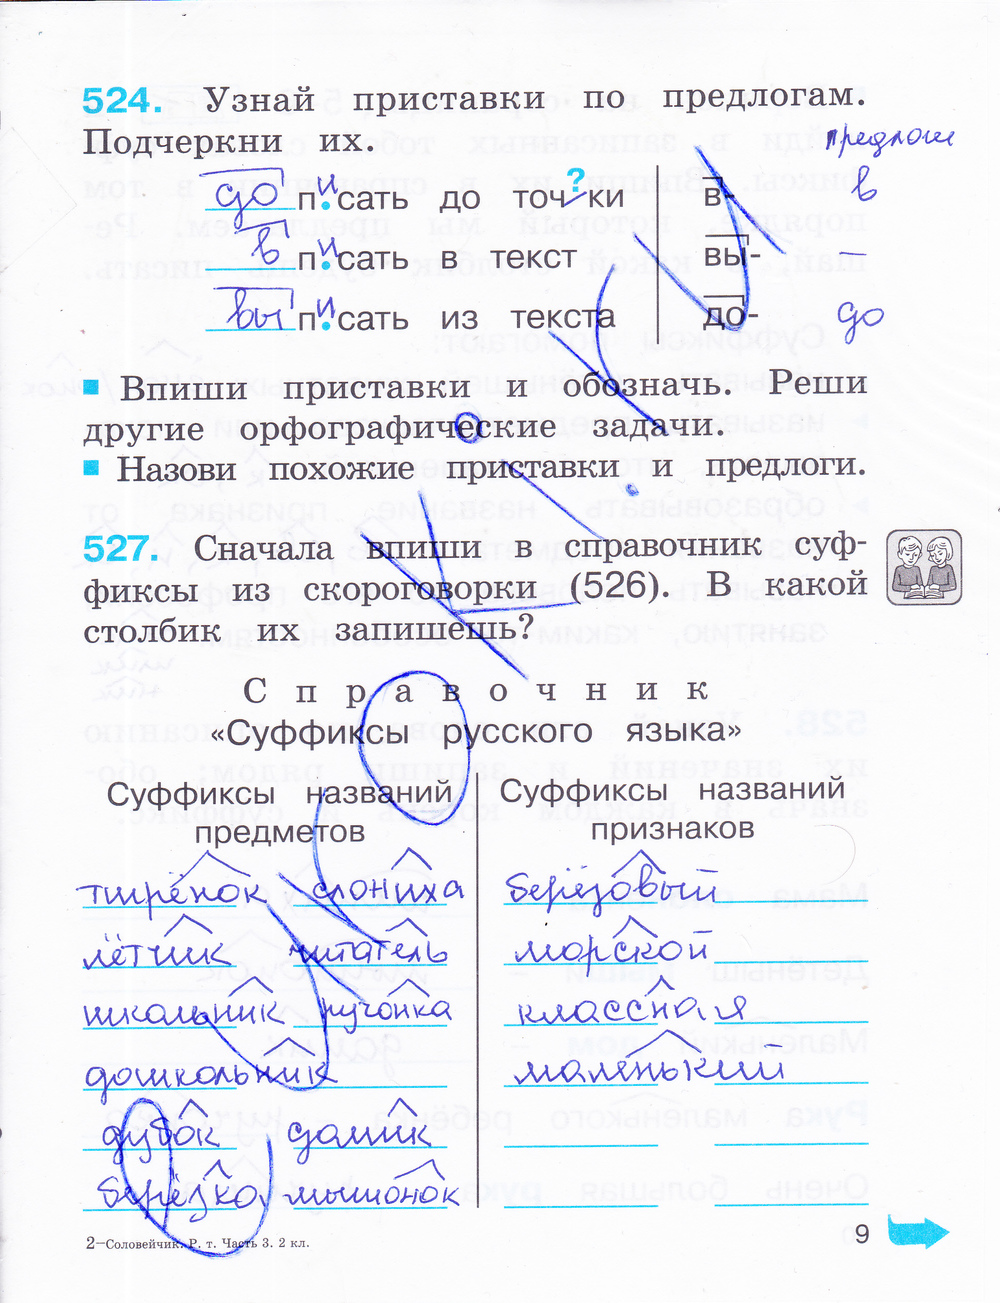 524. Узнай приставки по предлогам.
Подчеркни их.
предлоги
до писать до точки в- в
?
в писать в текст вы- —
вы писать из текста до- до
Впиши приставки и обозначь. Реши
другие орфографические задачи.
Назови похожие приставки и предлоги.
527. Сначала впиши в справочник суф-
фиксы из скороговорки (526). В какой
столбик их запишешь?
Справочник
«Суффиксы русского языка»
Суффиксы названий предметов
Суффиксы названий признаков
тигрёнок слониха берёзовый
лётчик читатель морской
школьник ручонка классная
дошкольник маленький
дубок домик
берёзка мышонок
2—Соловейчик. Р. т. Часть 3. 2 кл.
9